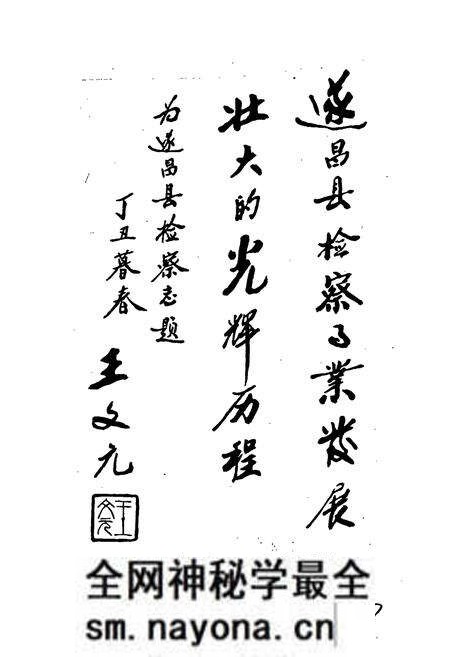 遂昌县检察事业发展
壮大的光辉历程
为遂昌县检察志题
丁丑暮春
王文元
王文元
全网神秘学最全
sm.nayona.cn